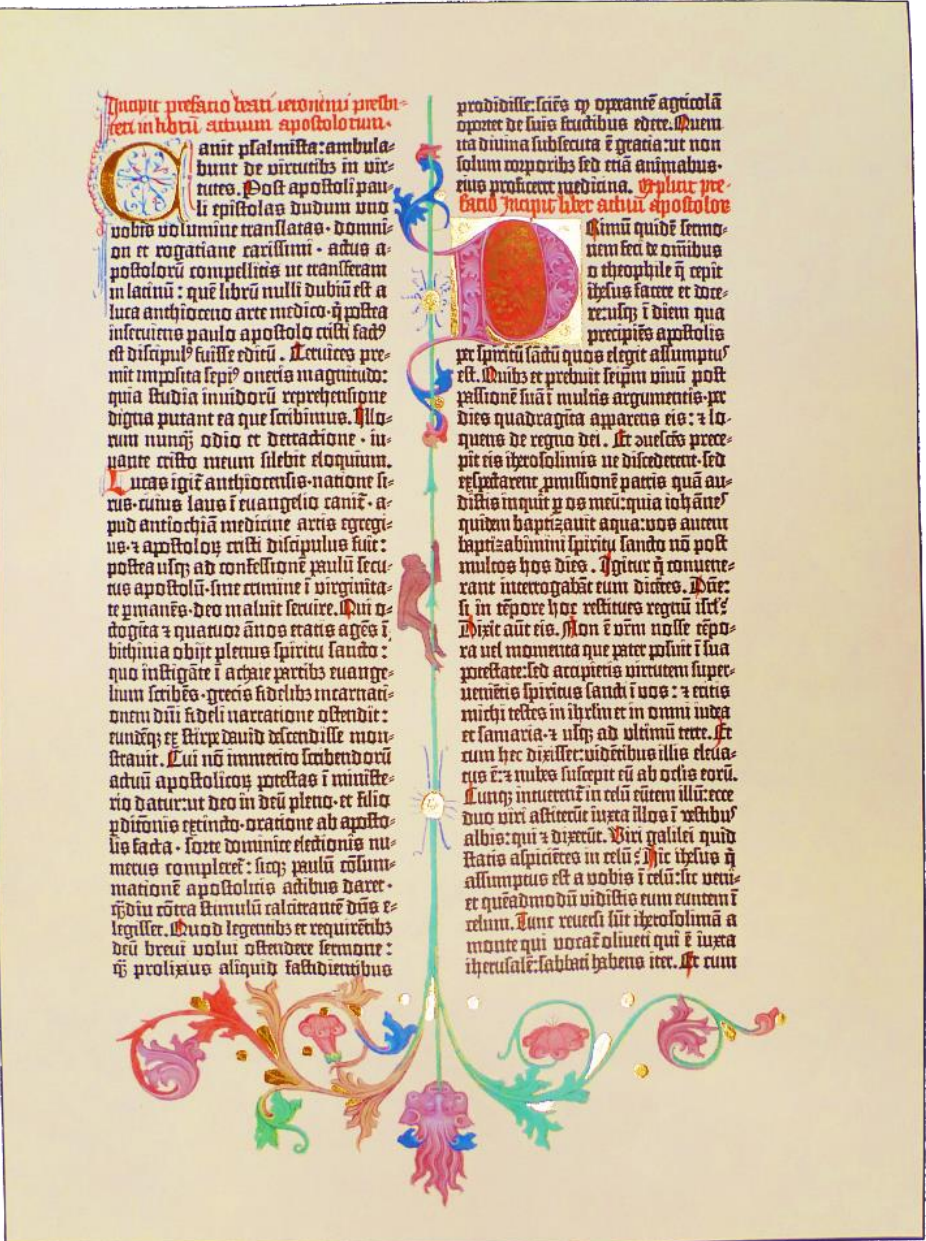 Incipit prefacio beati ieronimi presbi⸗
teri in librū actuum apostolorum.
Canit psalmista: ambula⸗
bunt de virtutibꝫ in vir⸗
tutes. Post apostoli pau⸗
li epistolas dudum uno
vobis volumine translatas· domni⸗
on et rogatiane carissimi · actus a⸗
postolorū compellitis ut transferam
in latinū : quē librū nulli dubiū est a
luca anthioceno arte medico· q̄ postea
inserviens paulo apostolo cristi factꝰ
est discipulꝰ fuisse editū . Cervices pre⸗
mit imposita sepiꝰ oneris magnitudo:
quia studia invidorū reprehensione
digna putant ea que scribimus. Illo⸗
rum nunqꝫ odio et detractione · iu⸗
vante cristo meum silebit eloquium.
Lucas igit̄ anthiocensis·natione si⸗
rus·cuius laus ī evangelio canit̄ · a⸗
pud antiochiā medicine artis egregi⸗
us·⁊ apostoloꝝ cristi discipulus fuit:
postea usqꝫ ad confessionē paulū secu⸗
tus apostolū·sine crimine ī virginita⸗
te ꝑmanēs·deo maluit servire. Qui o⸗
ctogīta ⁊ quatuor ānos etatis agēs ī
bithinia obijt plenus spiritu sancto :
quo instigāte ī achaie partibꝫ evange⸗
lium scribēs·grecis fidelibꝫ incarnati⸗
onem dn̄i fideli narratione ostendit :
eundēqꝫ ex stirpe david descendisse mon⸗
stravit. Cui nō immerito scribendorū
actuū apostolicoꝝ potestas ī ministe⸗
rio datur:ut deo in deū pleno·et filio
ꝑditionis extincto·oratione ab aposto⸗
lis facta · sorte dominice electionis nu⸗
merus compleret̄ : sicqꝫ paulū cōsum⸗
mationē apostolicis actibus daret·
quēdiu cōtra stimulū calcitrantē dn̄s e⸗
legisset. Quod legentibꝫ et requirētibꝫ
deū brevi volui ostendere sermone :
qꝫ prolixius aliquid fastidientibus
prodidisse:sciēs ꝙ operantē agricolā
oportet de suis fructibus edere. Quem
ita divina subsecuta ē gratia:ut non
solum corporibꝫ sed etiā animabus·
eius proficeret medicina. Explicit pre⸗
facio Incipit liber actuū apostoloꝝ
Primū quidē sermo⸗
nem feci de omībus
o theophile q̄ cepit
ihesus facere et doce⸗
re:usqꝫ ī diem qua
precipiēs apostolis
per spiritū sāctū quos elegit assumptꝰ
est. Quibꝫ et prebuit seipm̄ vivū post
passionē suā ī multis argumentis·per
dies quadragīta apparens eis:⁊ lo⸗
quens de regno dei . Et vescēs prece⸗
pit eis iherosolimis ne discederent·sed
exspectarent ꝓmissionē patris quā au⸗
distis inquit ꝑ os meū:quia iohānes
quidem baptizavit aqua:vos autem
baptizabimini spiritu sancto nō post
multos hos dies . Igitur q̄ convene⸗
rant interrogabāt eum dicētes. Dn̄e:
si in tēpore hoc restitues regnū isrl̄?
Dixit aūt eis. Non ē vrm̄ nosse tēpo⸗
ra vel momenta que pater posuit ī sua
potestate:sed accipietis virtutem super⸗
venietis spiritus sancti ī vos : ⁊ eritis
michi testes in ihrlm̄ et in omni iudea
et samaria·⁊ usqꝫ ad ultimū terre. Et
cum hec dixisset:vidētibus illis eleva⸗
tus ē:⁊ nubes suscepit eū ab oclis eorū.
Cunqꝫ intuerent̄ in celū eūtem illū:ecce
duo viri astiterūt iuxta illos ī vestibꝰ
albis: qui ⁊ dixerūt. Viri galilei quid
statis aspiciētes in celū? Hic ihesus q̄
assumptus est a vobis ī celū:sic veni⸗
et quēadmodū vidistis eum euntem ī
celum. Tunc reversi sūt iherosolimā a
monte qui vocat̄ oliveti qui ē iuxta
iherusalē:sabbati habens iter. Et cum